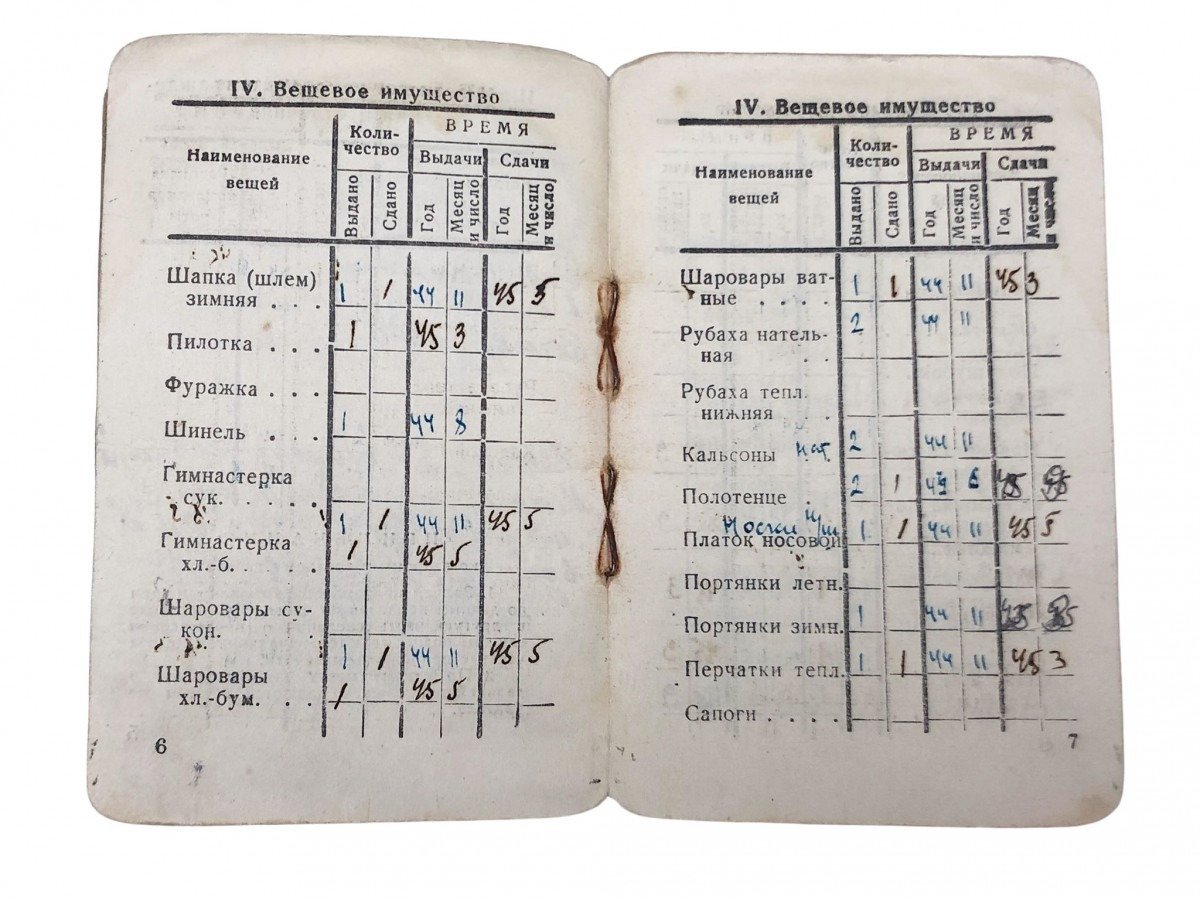 IV. Вещевое имущество
Наименование вещей
Коли-
чество
ВРЕМЯ
Выдачи
Сдачи
Выдано
Сдано
Год
Месяц и число
Год
Месяц и число
Шапка (шлем)
зимняя . . . 1 1 44 11 45 5
Пилотка . . . 1 45 3
Фуражка . . .
Шинель . . . 1 44 8
Гимнастерка
сук. . . . .
1 1 44 11 45 5
Гимнастерка
хл.-б. . . . . 1 45 5
Шаровары су-
кон. .
1 1 44 11 45 5
Шаровары
хл.-бум. . . 1 45 5
6
IV. Вещевое имущество
Наименование
вещей
Коли-
чество
ВРЕМЯ
Выдачи
Сдачи
Выдано
Сдано
Год
Месяц и число
Год
Месяц и число
Шаровары ват-
ные . . . . 1 1 44 11 45 3
Рубаха натель- 2 44 11
ная . .
Рубаха тепл.
нижняя . . .
Кальсоны нат. 2 44 11
Полотенце . 2 1
Носки
Платок носовой 1 1 44 11 45 5
Портянки летн.
Портянки зимн. 1 44 11
Перчатки тепл. 1 1 44 11 45 3
Сапоги . . . .
7